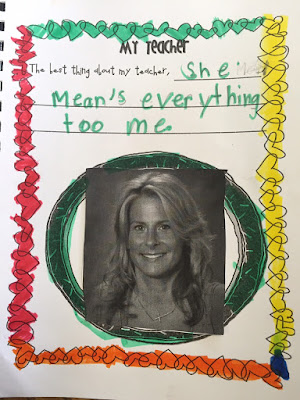 My Teacher
The best thing about my teacher, She
Mean's everything
too me.